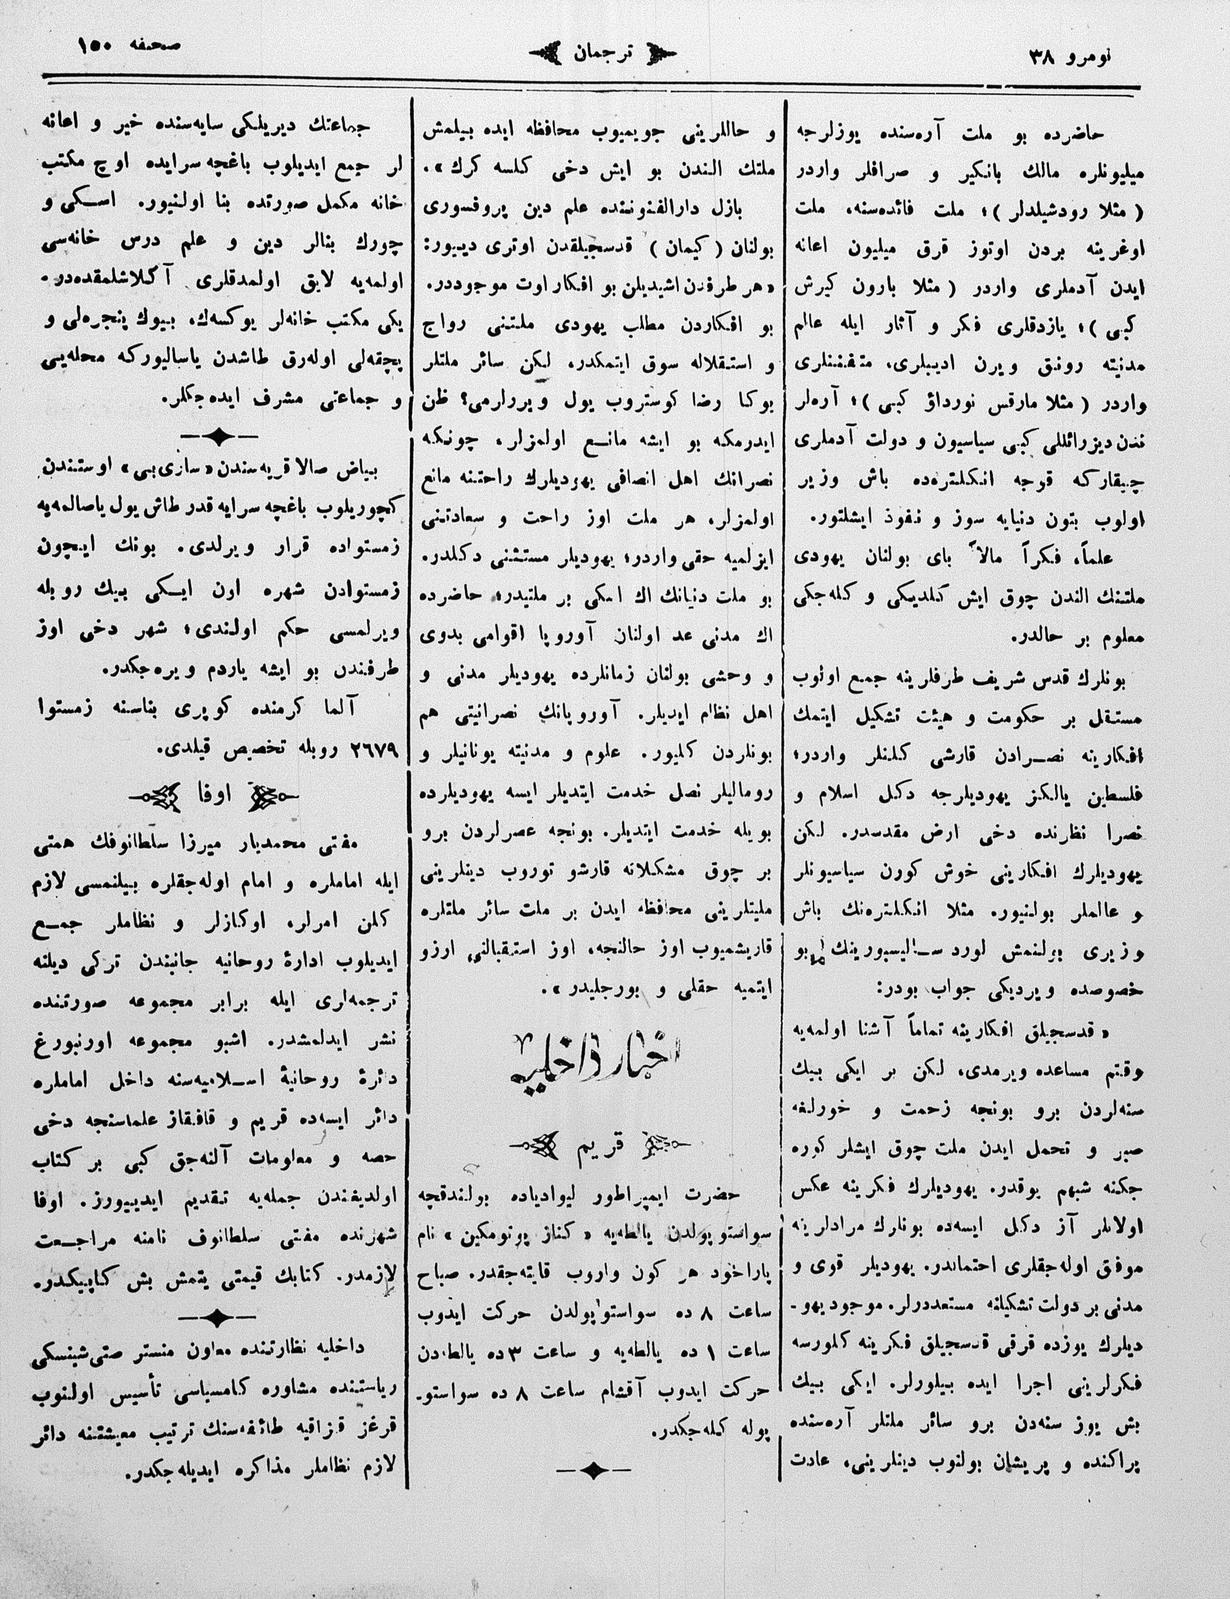 نومرو ٣٨
ترجمان
صحیفه ١٥٠
حاضرده بو ملت آره‌سنده یوزلرجه
میلیونلره مالك بانكیر و صرافلر واردر
( مثلا رودشیلدلر )؛ ملت فائده‌سنه، ملت
اوغرینه بردن اوتوز قرق میلیون اعانه
ایدن آدملری واردر ( مثلا بارون كیرش
كبی )؛ یازدقلری فكر و آثار ایله عالم
مدنیته رونق ویرن ادیبلری، متفننلری
واردر ( مثلا مارقس نورداؤ كبی )؛ آره‌لر
ندن دیزرائللی كبی سیاسیون و دولت آدملری
چیقاركه قوجه انكلتره‌ده باش وزیر
اولوب بتون دنیایه سوز و نفوذ ایشلتور.
علماً، فكراً مالاً بای بولنان یهودی
ملتنك الندن چوق ایش كلدیكی و كله‌جكی
معلوم بر حالدر.
بونلرك قدس شریف طرفلرینه جمع اولوب
مستقل بر حكومت و هیئت تشكیل ایتمك
افكارینه نصرادن قارشی كلنلر واردر؛
فلسطین یالكز یهودیلرجه دكل اسلام و
نصرا نظرنده دخی ارض مقدسدر. لكن
یهودیلرك افكارینی خوش كورن سیاسیونلر
و عالملر بولنیور. مثلا انكلتره‌نك باش
وزیری بولنمش لورد سالیسبورینك بو
خصوصده ویردیكی جواب بودر:
« قدسجیلق افكارینه تماماً آشنا اولمه‌یه
وقتم مساعده ویرمدی، لكن بر ایكی بیك
سنه‌لردن برو بونجه زحمت و خورلغه
صبر و تحمل ایدن ملت چوق ایشلر كوره
جكنه شبهم یوقدر. یهودیلرك فكرینه عكس
اولانلر آز دكل ایسه‌ده بونلرك مرادلرینه
موفق اوله‌جقلری احتمالدر. یهودیلر قوی و
مدنی بر دولت تشكیلنه مستعددرلر. موجود یهو-
دیلرك یوزده قرقی قدسجیلق فكرینه كلورسه
فكرلرینی اجرا ایده بیلورلر. ایكی بیك
بش یوز سنه‌دن برو سائر ملتلر آره‌سنده
پراكنده و پریشان بولنوب دینلرینی، عادت
و حاللرینی جویمیوب محافظه ایده بیلمش
ملتك الندن بو ایش دخی كلسه كرك ».
بازل دارالفنوننده علم دین پروفسوری
بولنان ( كیمان ) قدسجیلقدن اوتری دیبور:
« هر طرفدن اشیدیلن بو افكار اوت موجوددر.
بو افكاردن مطلب یهودی ملتنی رواج
و استقلاله سوق ایتمكدر، لكن سائر ملتلر
بوكا رضا كوستروب یول ویررلرمی؟ ظن
ایدرمكه بو ایشه مانع اولمزلر، چونكه
نصرانك اهل انصافی یهودیلرك راحتنه مانع
اولمزلر، هر ملت اوز راحت و سعادتنی
ایزلمیه حقی واردر؛ یهودیلر مستثنی دكلدر.
بو ملت دنیانك اك اسكی بر ملتیدر؛ حاضرده
اك مدنی عد اولنان آوروپا اقوامی بدوی
و وحشی بولنان زمانلرده یهودیلر مدنی و
اهل نظام ایدیلر. آوروپانك نصرانیتی هم
بونلردن كلیور. علوم و مدنیته یونانیلر و
رومالیلر نصل خدمت ایتدیلر ایسه یهودیلرده
بویله خدمت ایتدیلر. بونجه عصرلردن برو
بر چوق مشكلاته قارشو توروب دینلرینی
ملیتلرینی محافظه ایدن بر ملت سائر ملتلره
قاریشمیوب اوز حالنجه، اوز استقبالنی ارزو
ایتمیه حقلی و بورجلیدر ».
اخبار داخلیه
قریم
حضرت ایمپراطور لیوادیاده بولندقچه
سواستوپولدن یالطه‌یه « كناز پوتومكین » نام
پاراخود هر كون واروب قایته‌جقدر. صباح
ساعت ٨ ده سواستوپولدن حركت ایدوب
ساعت ١ ده یالطه‌یه و ساعت ٣ ده یالطه‌دن
حركت ایدوب آقشام ساعت ٨ ده سواستو-
پوله كله‌جكدر.
جماعتك دیریلكی سایه‌سنده خیر و اعانه
لر جمع ایدیلوب باغچه سرایده اوچ مكتب
خانه مكمل صورتده بنا اولنیور. اسكی و
چورك بنالر دین و علم درس خانه‌سی
اولمه‌یه لایق اولمدقلری آكلاشلمقده‌در.
یكی مكتب خانه‌لر یوكسه‌ك، بیوك پنجره‌لی و
پچقه‌لی اوله‌رق طاشدن یاسالیوركه محله‌یی
و جماعتی مشرف ایده‌جكلر.
بیاض صالا قریه‌سندن « سازی بی » اوستندن
كچوریلوب باغچه سرایه قدر طاش یول یاصالمه‌یه
زمستواده قرار ویرلدی. بونك ایچون
زمستوادن شهره اون ایكی بیك روبله
ویرلمسی حكم اولندی؛ شهر دخی اوز
طرفندن بو ایشه یاردم ویره‌جكدر.
آلما كرمنده كوپری بناسنه زمستوا
٢٦٧٩ روبله تخصیص قیلدی.
اوفا
مفتی محمدیار میرزا سلطانوفك همتی
ایله اماملره و امام اوله‌جقلره بیلنمسی لازم
كلن امرلر، اوكازلر و نظاملر جمع
ایدیلوب ادارهٔ روحانیه جانبندن تركی دیلنه
ترجمه‌لری ایله برابر مجموعه صورتنده
نشر ایدلمشدر. اشبو مجموعه اورنبورغ
دائرهٔ روحانیهٔ اسلامیه‌سنه داخل اماملره
دائر ایسه‌ده قریم و قافقاز علماسنجه دخی
حصه و معلومات آلنه‌جق كبی بر كتاب
اولدیغندن جمله‌یه تقدیم ایدیبورز. اوفا
شهرنده مفتی سلطانوف نامنه مراجعت
لازمدر. كتابك قیمتی یتمش بش كاپیكدر.
داخلیه نظارتنده معاون منستر صتی شینسكی
ریاستنده مشاوره كامسیاسی تأسیس اولنوب
قرغز قزاقیه طائفه‌سنك ترتیب معیشتنه دائر
لازم نظاملر مذاكره ایدیله‌جكدر.